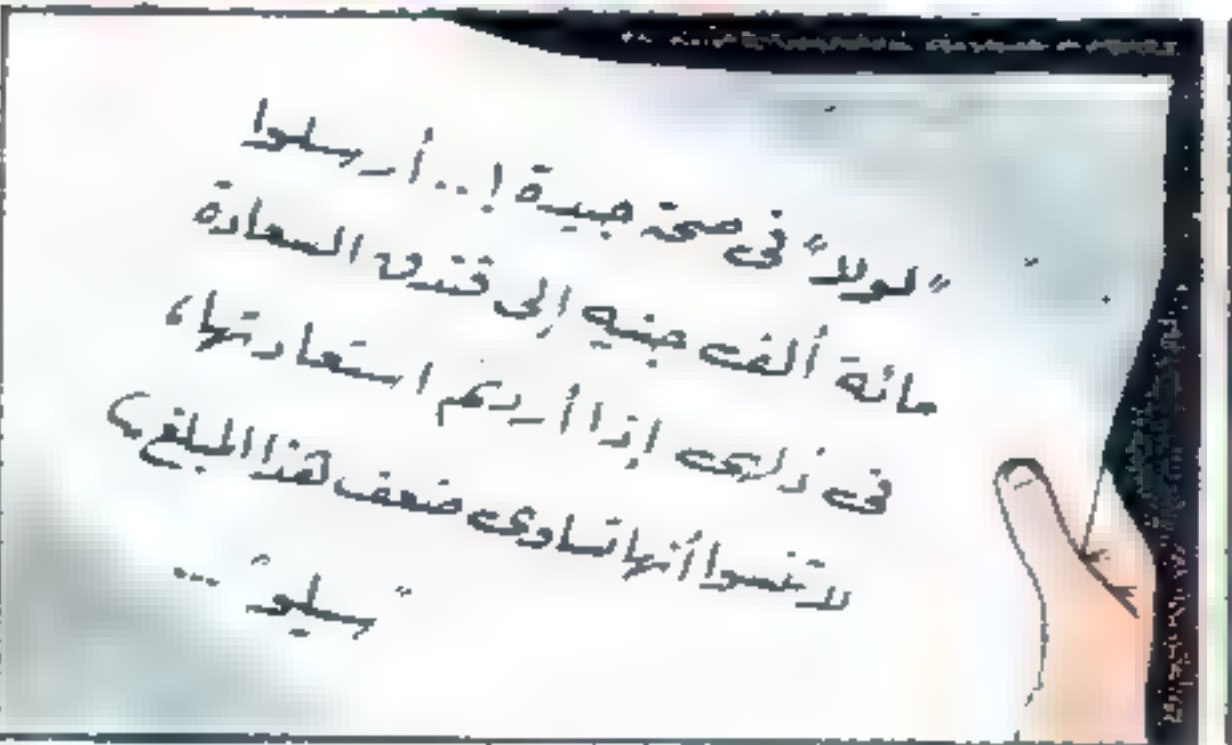 "لولا" فى صحة جيدة !.. أرسلوا
مائة ألف جنيه إلى فندق السعادة
فى إذا أردتم استعادتها،
لا تنسوا أنها تساوى ضعف هذا المبلغ،
"سيلو" ...